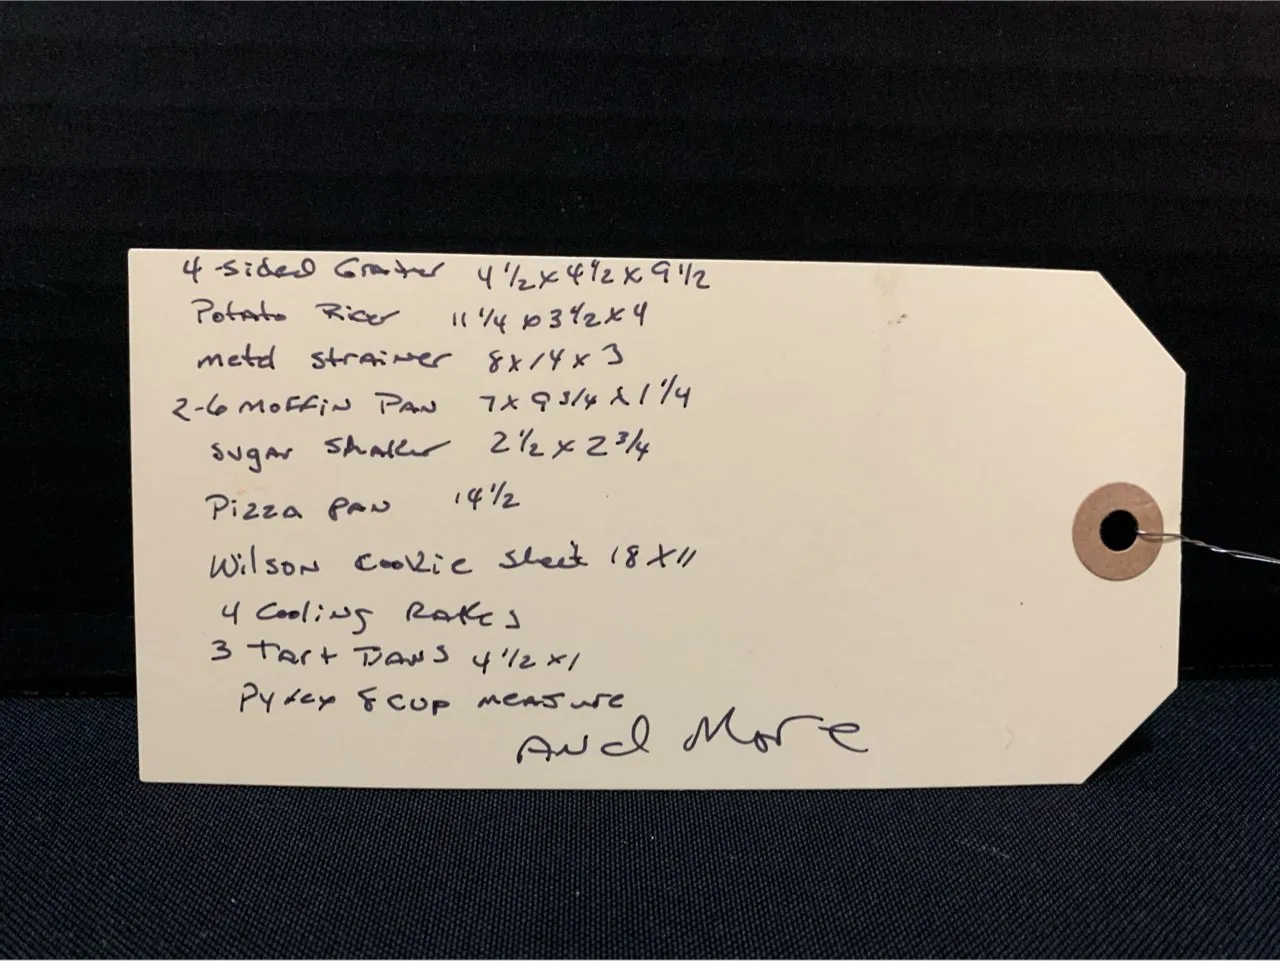 4-sided Grater 4 1/2 x 4 1/2 x 9 1/2
Potato Ricer 11 1/4 x 3 1/2 x 4
metal strainer 8 x 14 x 3
2-6 MOFFiN PAN 7 x 9 3/4 x 1 1/4
sugar shaker 2 1/2 x 2 3/4
Pizza PAN 14 1/2
Wilson Cookie sheet 18 x 11
4 Cooling RAKes
3 Tart PANS 4 1/2 x 1
Pyrex 8 CUP MEASure
ANd More